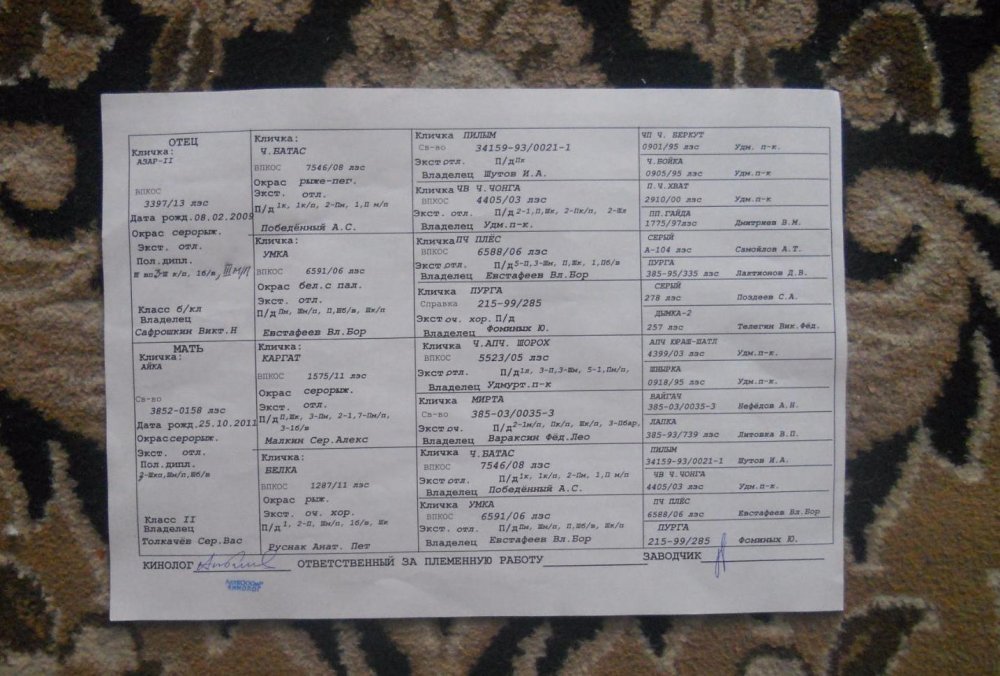 ОТЕЦ
Кличка:
АЗАР-II
ВПКОС
3397/13 лэс
Дата рожд.08.02.2009
Окрас серорыж.
Экст. отл.
Пол.дипл.
Класс б/кл
Владелец
Сафрошкин Викт.Н
МАТЬ
Кличка:
АЙКА
Св-во
3852-0158 лэс
Дата рожд.25.10.2011
Окрас серорыж.
Экст. отл.
Пол.дипл.
Класс II
Владелец
Толкачёв Сер.Вас
Кличка:
Ч.БАТАС
ВПКОС 7546/08 лэс
Окрас рыже-пег.
Экст. отл.
П/д 1к, 1к/п, 2-Пм, 1,П м/п
Победённый А.С.
Кличка:
УМКА
ВПКОС 6591/06 лэс
Окрас бел.с пал.
Экст. отл.
П/д Пм, Шм/п, П,Шб/в, Шк/п
Евстафеев Вл.Бор
Кличка:
КАРГАТ
ВПКОС 1575/11 лэс
Окрас серорыж.
Экст. отл.
П/д П,Шк, 3-Пм, 2-1,7-Пм/п,
3-1б/в
Малкин Сер.Алекс
Кличка:
БЕЛКА
ВПКОС 1287/11 лэс
Окрас рыж.
Экст. оч. хор.
П/д 1, 2-П, Шм/п, 1б/в, Шк
Руснак Анат. Пет
Кличка ПИЛЫМ
Св-во 34159-93/0021-1
Экст отл. П/д Пк
Владелец Шутов И.А.
Кличка ЧВ Ч.ЧОНГА
ВПКОС 4405/03 лэс
Экст. отл. П/д 2-1,П,Шк, 2-Пк/п, 2-Шл
Владелец Удм.п-к.
Кличка ПЧ ПЛЁС
ВПКОС 6588/06 лэс
Экст.отл. П/д 5-П,3-Шм, П,Шк, 1,Пб/в
Владелец Евстафеев Вл.Бор
Кличка ПУРГА
Справка 215-99/285
Экст оч. хор. П/д
Владелец Фоминых Ю.
Кличка Ч.АПЧ. ШОРОХ
ВПКОС 5523/05 лэс
Экст отл. П/д 1л, 3-П,3-Шм, 5-1,Пм/п,
Владелец Удмурт.п-к
Кличка МИРТА
Св-во 385-03/0035-3
Экст оч. П/д 2-1м/п, Пк/п, Шк/п, 3-Пбар,
Владелец Вараксин Фёд.Лео
Кличка Ч.БАТАС
ВПКОС 7546/08 лэс
Экст отл. П/д 1к, 1к/п, 2-Пм, 1,П м/п
Владелец Победённый А.С.
Кличка УМКА
ВПКОС 6591/06 лэс
Экст. отл. П/д Пм, Шм/п, П,Шб/в, Шк/п
Владелец Евстафеев Вл.Бор
ЧП Ч. БЕРКУТ
0901/95 лэс Удм. п-к.
Ч.БОЙКА
0905/95 лэс Удм.п-к
П.Ч.ХВАТ
2910/00 лэс Удм.п-к
ПП.ГАЙДА
1775/97лэс Дмитриев В.М.
СЕРЫЙ
А-104 лэс Самойлов А.Т.
ПУРГА
385-95/335 лэс Лактионов Д.В.
СЕРЫЙ
278 лэс Поздеев С.А.
ДЫМКА-2
257 лэс Телегин Вик.Фёд.
АПЧ ЮРАШ-ШАТЛ
4399/03 лэс Удм.п-к.
ШНЫРКА
0918/95 лэс Удм.п-к.
ВАЙГАЧ
385-03/0035-3 Нефёдов А.Н.
ЛАПКА
385-93/739 лэс Литовка В.П.
ПИЛЫМ
34159-93/0021-1 Шутов И.А.
ЧВ Ч.ЧОНГА
4405/03 лэс Удм.п-к.
ПЧ ПЛЁС
6588/06 лэс Евстафеев Вл.Бор
ПУРГА
215-99/285 Фоминых Ю.
КИНОЛОГ ОТВЕТСТВЕННЫЙ ЗА ПЛЕМЕННУЮ РАБОТУ ЗАВОДЧИК
КИНОЛОГ